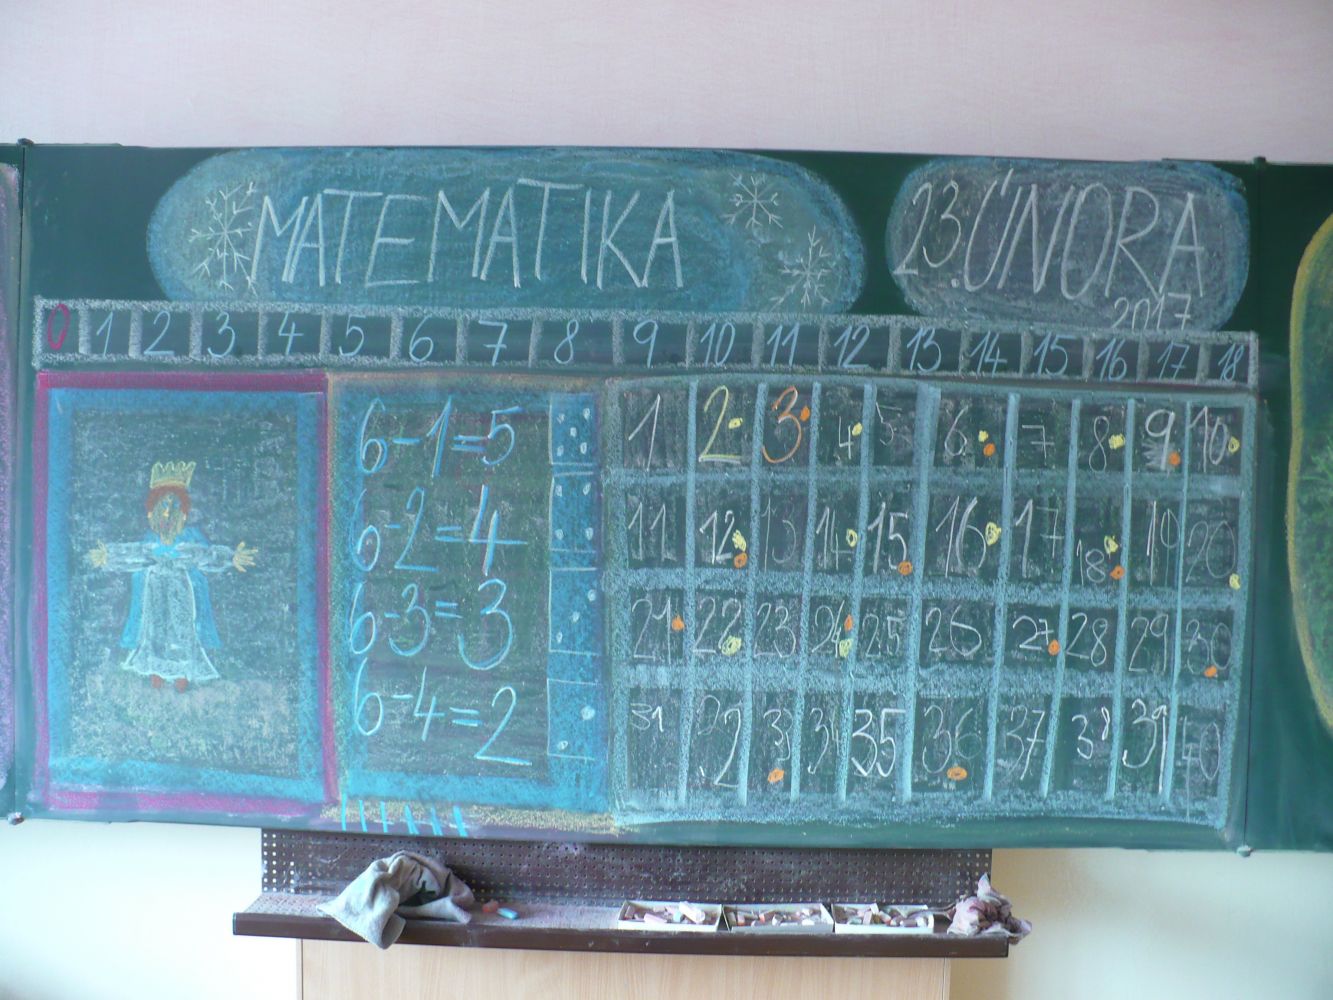 MATEMATIKA
23. ÚNORA
2017
0 1 2 3 4 5 6 7 8 9 10 11 12 13 14 15 16 17 18
6-1=5
6-2=4
6-3=3
6-4=2
1 2 3 4 5 6 7 8 9 10
11 12 13 14 15 16 17 18 19 20
21 22 23 24 25 26 27 28 29 30
31 32 33 34 35 36 37 38 39 40